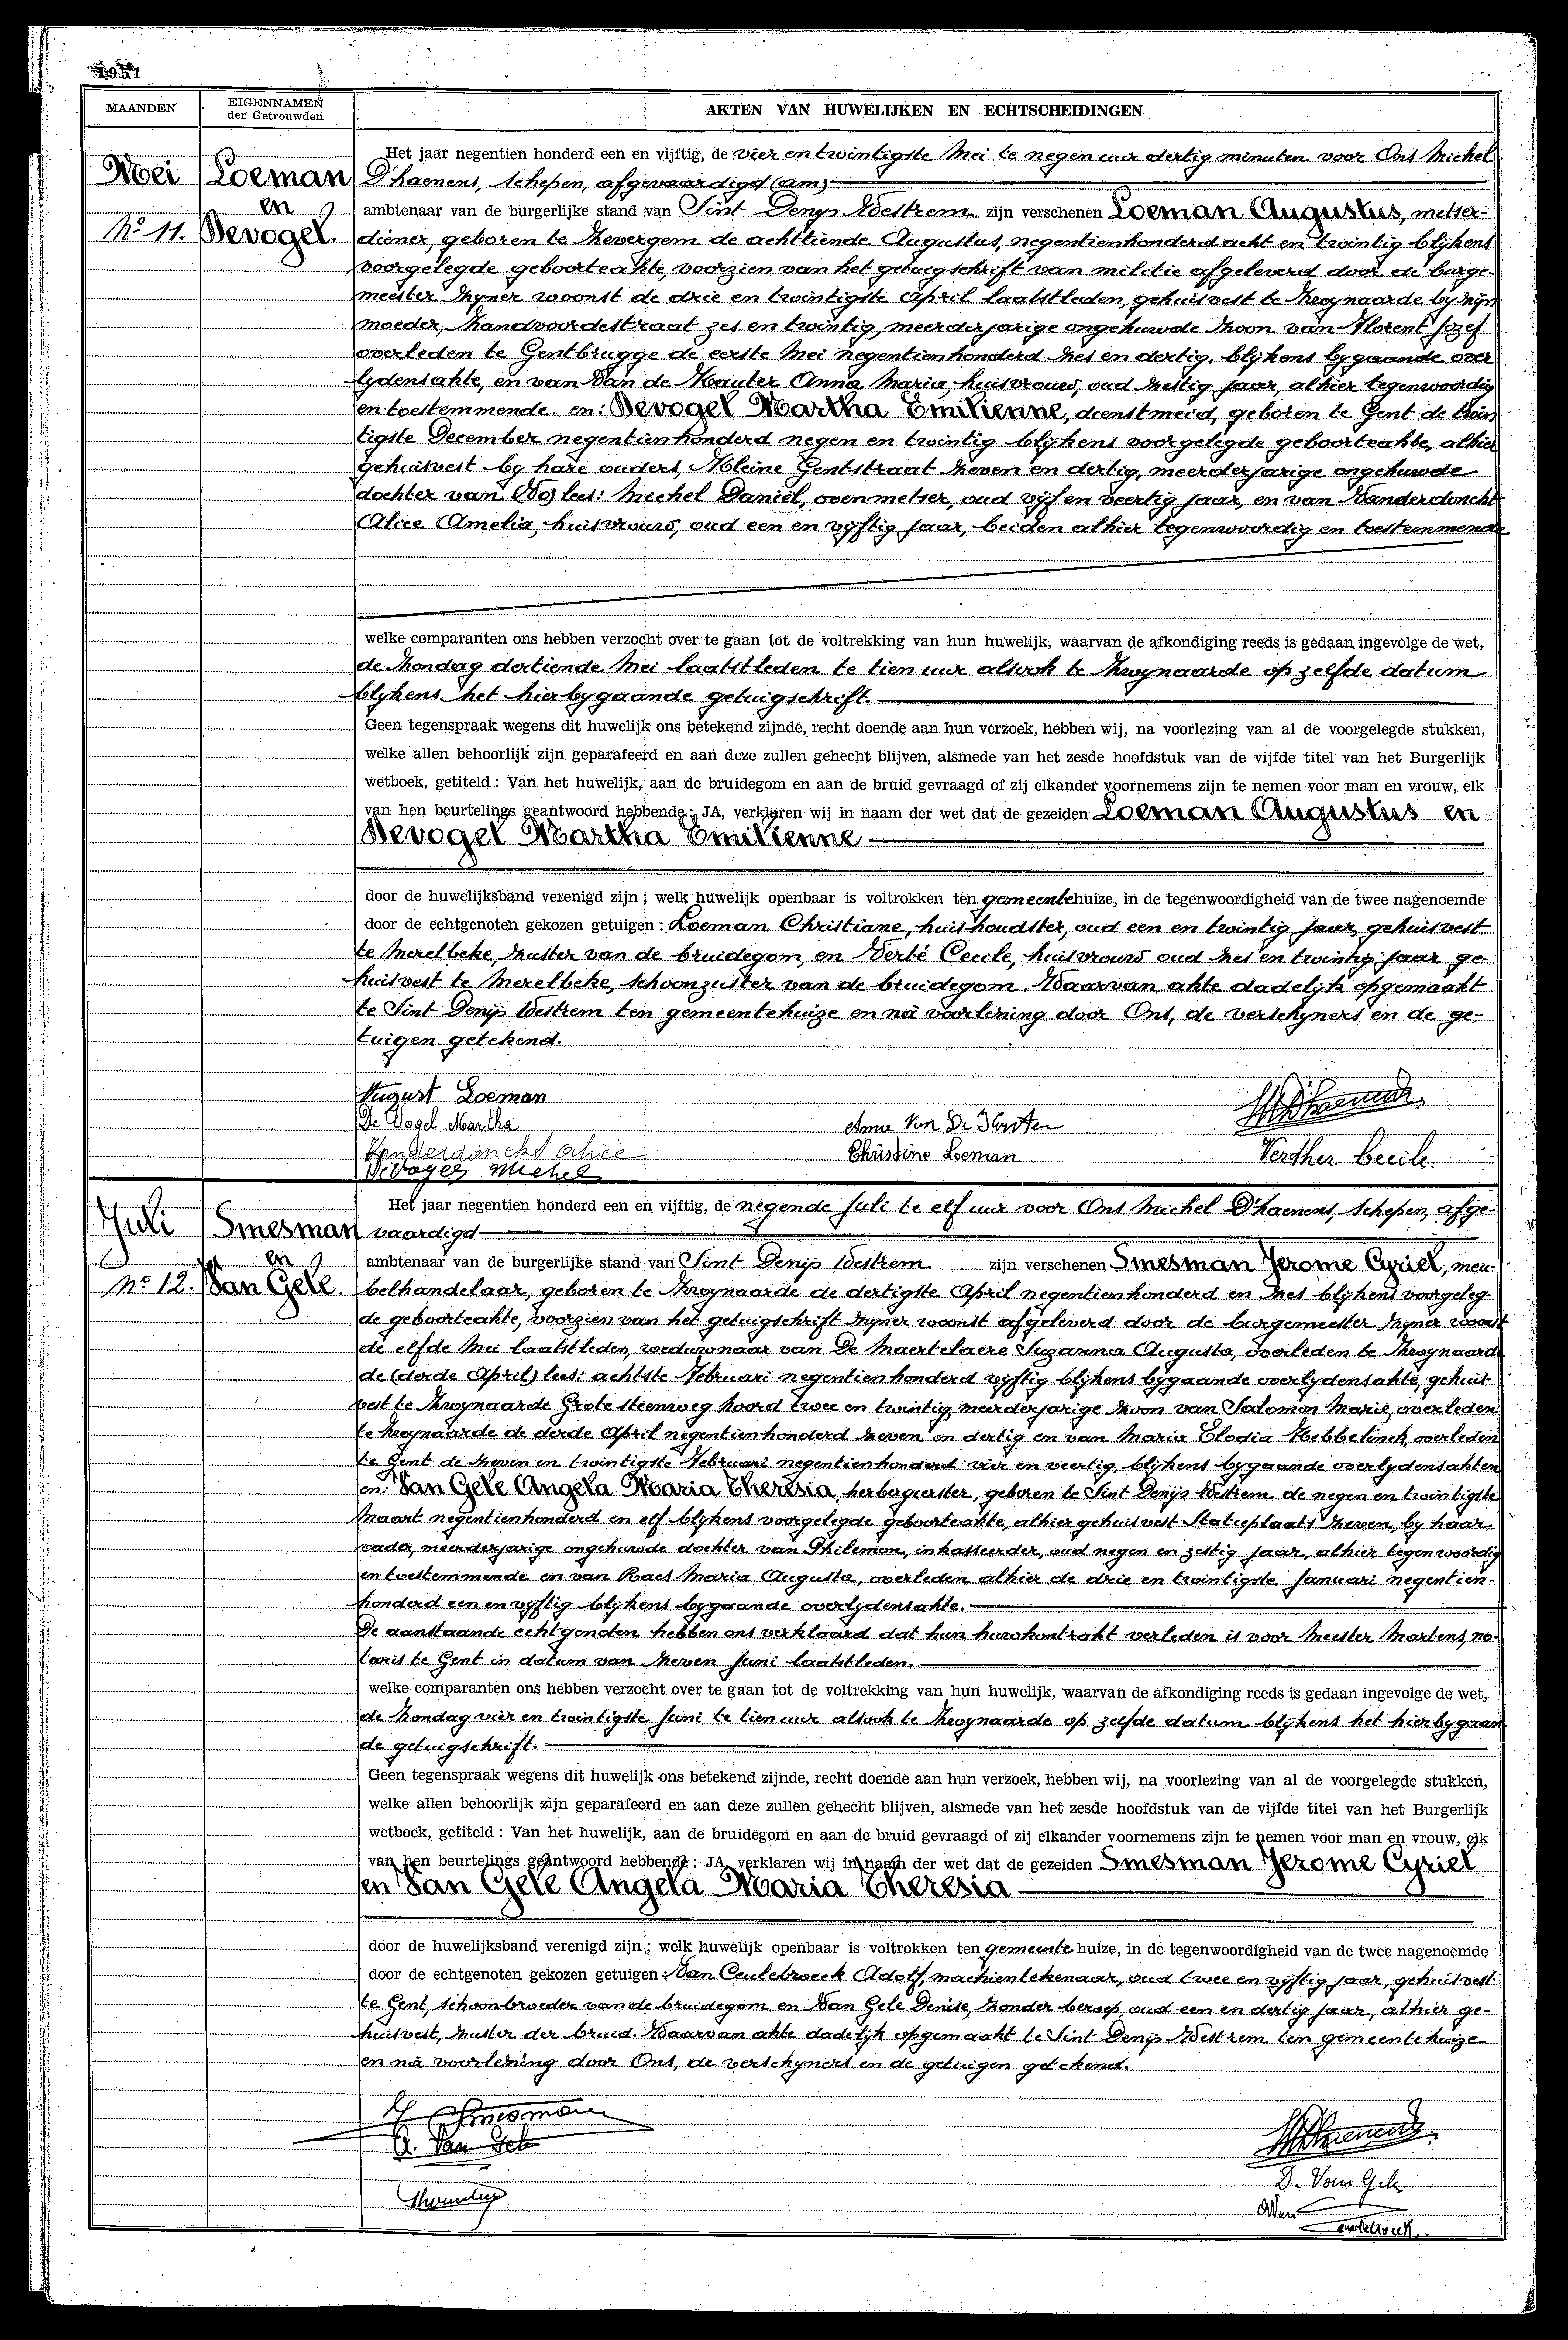 1951
MAANDEN
EIGENNAMEN
der Getrouwden
AKTEN VAN HUWELIJKEN EN ECHTSCHEIDINGEN
Mei
No 11.
Loeman
en
Devogel.
Het jaar negentien honderd een en vijftig, de vier en twintigste Mei te negen uur dertig minuten voor Ons Michel
D'haenens, schepen, afgevaardigd (am)
ambtenaar van de burgerlijke stand van Sint Denys Westrem zijn verschenen Loeman Augustus, metser-
diener, geboren te Zevergem de achttiende Augustus, negentienhonderd acht en twintig blijkens
voorgelegde geboorteakte, voorzien van het getuigschrift van militie afgeleverd door de burge-
meester zyner woonst de drie en twintigste April laatstleden, gehuisvest te Zwynaarde by zijn
moeder, Zandvoordestraat zes en twintig, meerderjarige ongehuwde zoon van Florent Jozef
overleden te Gentbrugge de eerste Mei negentienhonderd zes en dertig, blijkens bygaande over
lydensakte, en van Van de Kauter Anna Maria, huisvrouw, oud zestig jaar, alhier tegenwoordig
en toestemmende. en: Devogel Martha Emilienne, dienstmeid, geboren te Gent de twin
tigste December negentienhonderd negen en twintig blijkens voorgelegde geboorteakte, alhier
gehuisvest by hare ouders, Kleine Gentstraat zeven en dertig, meerderjarige ongehuwde
dochter van (Vo) lees: Michel Daniël, ovenmetser, oud vijf en veertig jaar, en van Vanderdonckt
Alice Amelia, huisvrouw, oud een en vyftig jaar, beiden alhier tegenwoordig en toestemmende
welke comparanten ons hebben verzocht over te gaan tot de voltrekking van hun huwelijk, waarvan de afkondiging reeds is gedaan ingevolge de wet,
de Zondag dertiende Mei laatstleden te tien uur alsook te Zwynaarde op zelfde datum
blykens het hierbygaande getuigschrift.
Geen tegenspraak wegens dit huwelijk ons betekend zijnde, recht doende aan hun verzoek, hebben wij, na voorlezing van al de voorgelegde stukken,
welke allen behoorlijk zijn geparafeerd en aan deze zullen gehecht blijven, alsmede van het zesde hoofdstuk van de vijfde titel van het Burgerlijk
wetboek, getiteld : Van het huwelijk, aan de bruidegom en aan de bruid gevraagd of zij elkander voornemens zijn te nemen voor man en vrouw, elk
van hen beurtelings geantwoord hebbende : JA, verklaren wij in naam der wet dat de gezeiden Loeman Augustus en
Devogel Martha Emilienne
door de huwelijksband verenigd zijn ; welk huwelijk openbaar is voltrokken ten gemeentehuize, in de tegenwoordigheid van de twee nagenoemde
door de echtgenoten gekozen getuigen : Loeman Christiane, huishoudster, oud een en twintig jaar, gehuisvest
te Merelbeke, zuster van de bruidegom, en Verté Cecile, huisvrouw oud zes en twintig jaar ge-
huisvest te Merelbeke, schoonzuster van de bruidegom. Waarvan akte dadelijk opgemaakt
te Sint Denijs Westrem ten gemeentehuize en nà voorlezing door Ons, de verschyners en de ge-
tuigen getekend.
August Loeman
De Vogel Martha
Vanderdonckt Alice
Devogel Michel
Christine Loeman
Verther Cecile.
Juli
No 12.
Smesman
en
Van Gele
Het jaar negentien honderd een en vijftig, de negende Juli te elf uur voor Ons Michel D'haenens, schepen, afge-
vaardigd
ambtenaar van de burgerlijke stand van Sint Denijs Westrem zijn verschenen Smesman Jerome Cyriel, meu-
belhandelaar, geboren te Zwynaarde de dertigste April negentienhonderd en zes blijkens voorgeleg-
de geboorteakte, voorzien van het getuigschrift zyner woonst afgeleverd door de burgemeester zyner woonst
de elfde Mei laatstleden, weduwnaar van De Maertelaere Suzanna Augusta, overleden te Zwynaarde
de (derde April) lees: achtste Februari negentienhonderd vijftig blijkens bygaande overlydensakte, gehuis-
vest te Zwynaarde Grote steenweg Noord twee en twintig, meerderjarige zoon van Salomon Marie, overleden
te Zwynaarde de derde April negentienhonderd zeven en dertig en van Maria Elodia Hebbelinck, overleden
te Gent de zeven en twintigste Februari negentienhonderd vier en veertig, blijkens bygaande overlydensakten
en: Van Gele Angela Maria Theresia, herbergierster, geboren te Sint Denijs Westrem de negen en twintigste
Maart negentienhonderd en elf blijkens voorgelegde geboorteakte, alhier gehuisvest Statieplaats zeven, by haar
vader, meerderjarige ongehuwde dochter van Philemon, inkasseerder, oud negen en zestig jaar, alhier tegenwoordig
en toestemmende en van Raes Maria Augusta, overleden alhier de drie en twintigste Januari negentien-
honderd een en vyftig blijkens bygaande overlydensakte.
De aanstaande echtgenoten hebben ons verklaard dat hun huwkontrakt verleden is voor Meester Martens, no-
taris te Gent in datum van zeven Juni laatstleden.
welke comparanten ons hebben verzocht over te gaan tot de voltrekking van hun huwelijk, waarvan de afkondiging reeds is gedaan ingevolge de wet,
de Zondag vier en twintigste Juni te tien uur alsook te Zwynaarde op zelfde datum blijkens het hierbygaan
de getuigschrift.
Geen tegenspraak wegens dit huwelijk ons betekend zijnde, recht doende aan hun verzoek, hebben wij, na voorlezing van al de voorgelegde stukken,
welke allen behoorlijk zijn geparafeerd en aan deze zullen gehecht blijven, alsmede van het zesde hoofdstuk van de vijfde titel van het Burgerlijk
wetboek, getiteld : Van het huwelijk, aan de bruidegom en aan de bruid gevraagd of zij elkander voornemens zijn te nemen voor man en vrouw, elk
van hen beurtelings geantwoord hebbende : JA, verklaren wij in naam der wet dat de gezeiden Smesman Jerome Cyriel
en Van Gele Angela Maria Theresia
door de huwelijksband verenigd zijn ; welk huwelijk openbaar is voltrokken ten gemeente huize, in de tegenwoordigheid van de twee nagenoemde
door de echtgenoten gekozen getuigen : Van Ceulebroeck Adolf, machientekenaar, oud twee en vyftig jaar, gehuisvest
te Gent, schoonbroeder van de bruidegom en Van Gele Denise, zonder beroep, oud een en dertig jaar, alhier ge-
huisvest, zuster der bruid. Waarvan akte dadelijk opgemaakt te Sint Denijs Westrem ten gemeentehuize
en nà voorlezing door Ons, de verschyners en de getuigen getekend.
Smesman
A. Van Gele
D. Van Gele